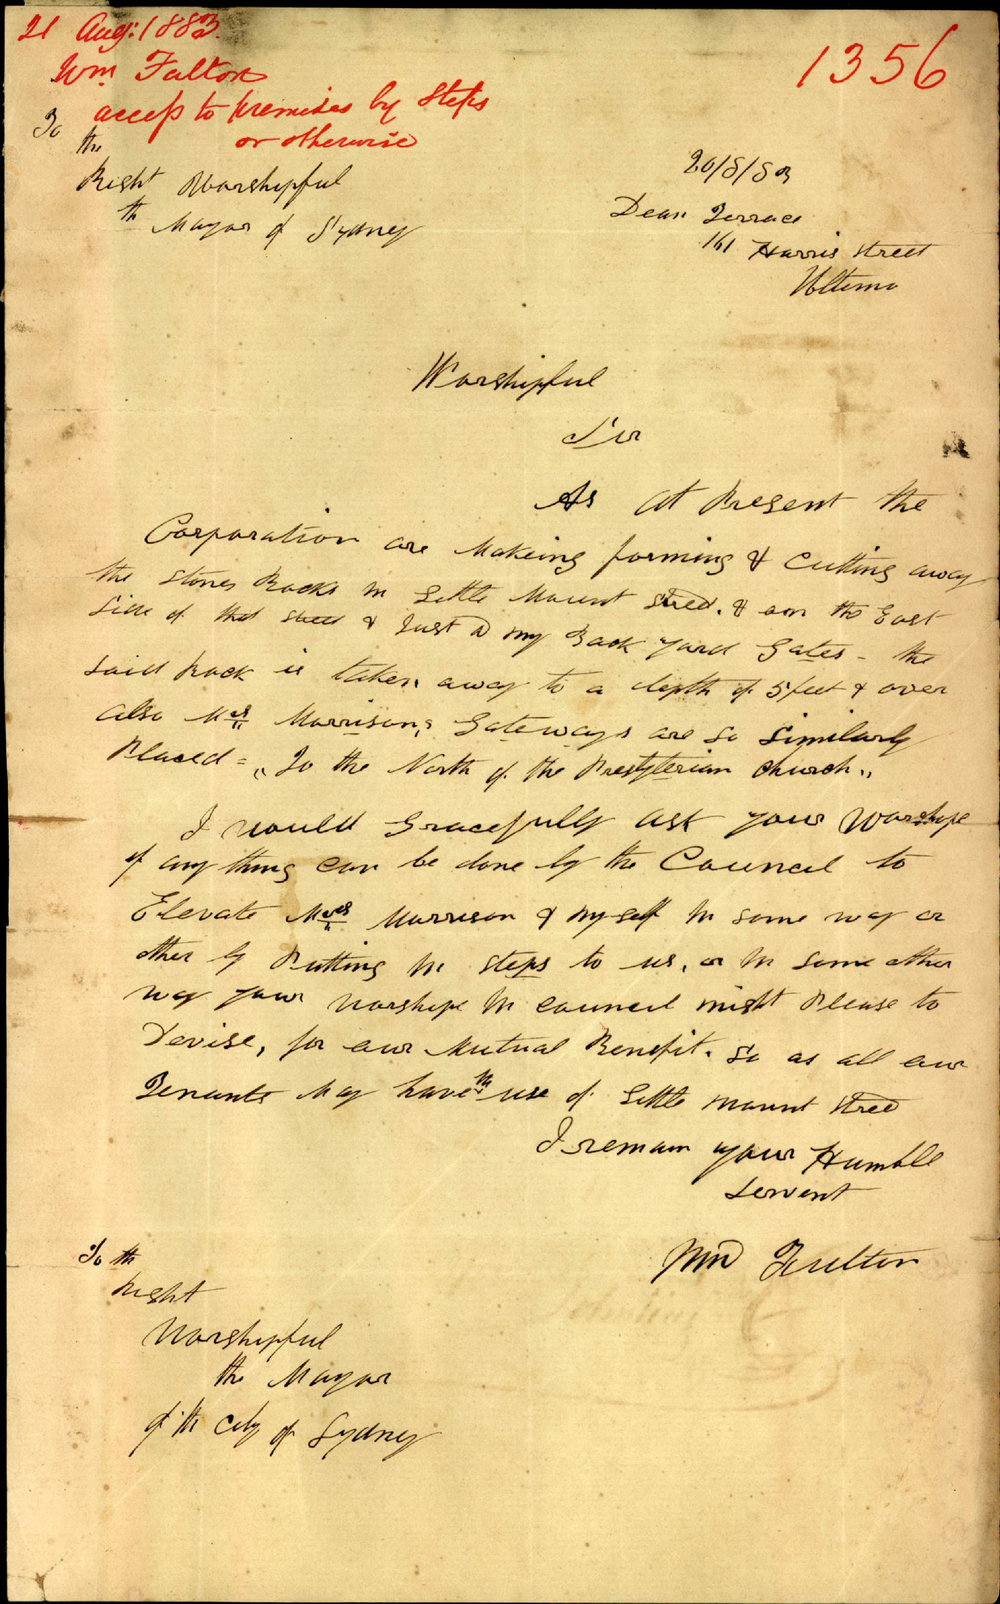 21 Aug: 1883.
1356
Wm Fulton
access to premises by Steps
or otherwise
To
the
Right Worshipful
th Mayor of Sydney
20/8/83
Dean Terrace
161 Harris Street
Ultimo
Worshipful
Sir
As at Present the
Corporation are Makeing forming & Cutting away
the stones Rocks in Little Mount Street. & on the East
Side of that street & Just a my Back yard Gates - the
Said Rock is taken away to a depth of 5 feet & over
also Mrs Morrisons, Gateways are so Similarly
Placed = „To the North of the Presbyterian Church„
I would Gracefully ask your Worshipe
if any thing can be done by the Council to
Elevate Mrs Morrison & Myself in some way or
other by Putting in steps to us, or in some other
way your Worshipe in Council might Please to
Devise, for our Mutual Benefit. So as all our
Tenants May have th use of Little Mount Street
I remain your Humble
Servent
Wm Fulton
To th
Right
Worshipful
the Mayor
of th City of Sydney